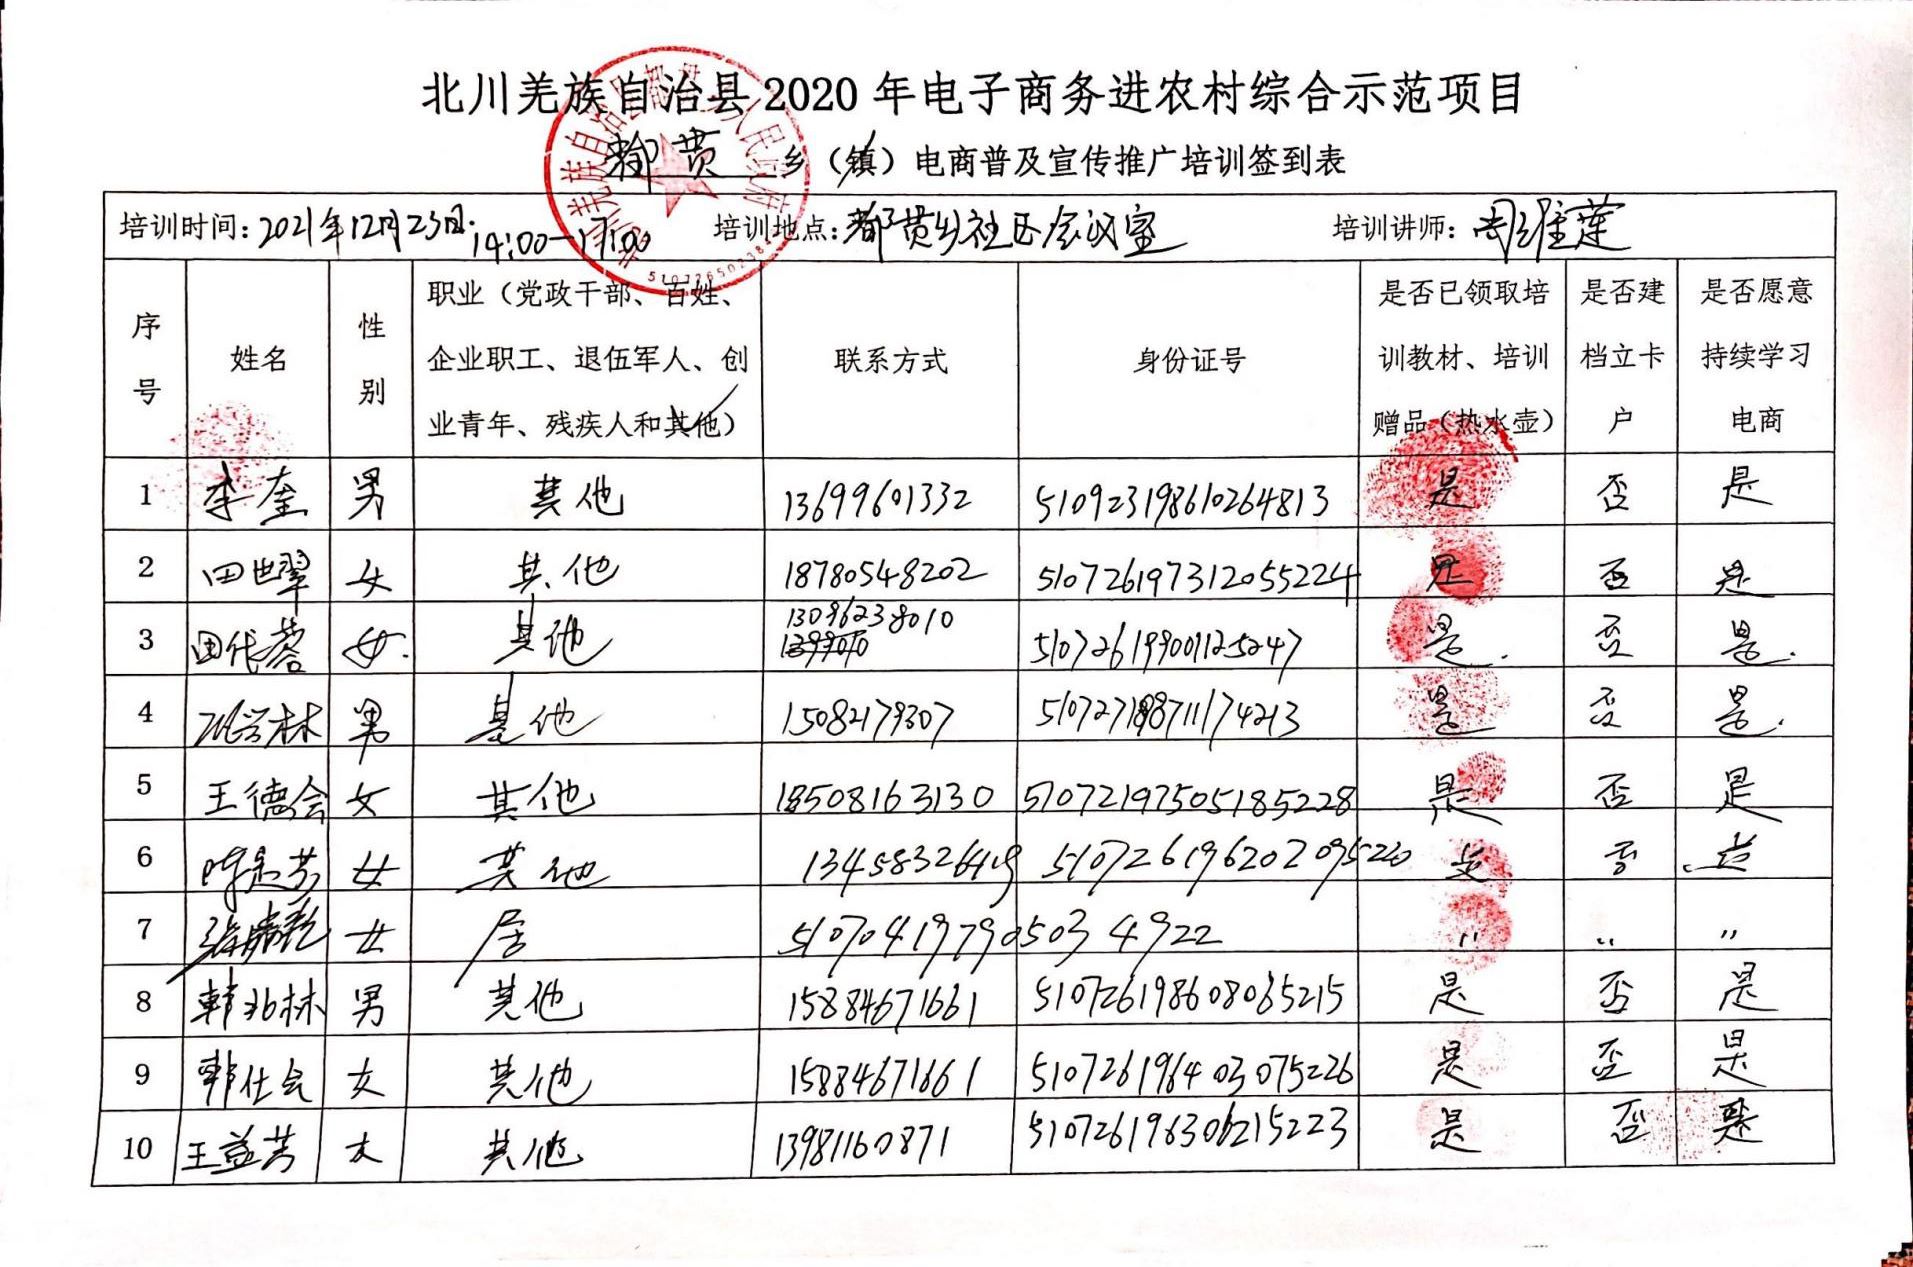 北川羌族自治县2020年电子商务进农村综合示范项目
都贯 乡（镇）电商普及宣传推广培训签到表
培训时间：2021年12月23日 14:00-17:00 培训地点：都贯乡社区会议室 培训讲师：周维莲
序号 姓名 性别 职业（党政干部、百姓、企业职工、退伍军人、创业青年、残疾人和其他） 联系方式 身份证号 是否已领取培训教材、培训赠品（热水壶） 是否建档立卡户 是否愿意持续学习电商
1 李奎 男 其他 13699601332 510923198610264813 是 否 是
2 田世翠 女 其他 18780548202 510726197312055224 是 否 是
3 田代蓉 女 其他 13096238010 510726199001125247 是 否 是
4 林 男 其他 15082179307 510727198711174213 是 否 是
5 王德会 女 其他 18508163130 510721197505185228 是 否 是
6 女 其他 13458326419 510726196202095220 是 否 是
7 女 居 510704197905034922 〃 〃 〃
8 韩兆林 男 其他 15884671661 510726198608065215 是 否 是
9 韩仕会 女 其他 15884671661 510726196403075226 是 否 是
10 王益芳 女 其他 13981160871 510726196306215223 是 否 是